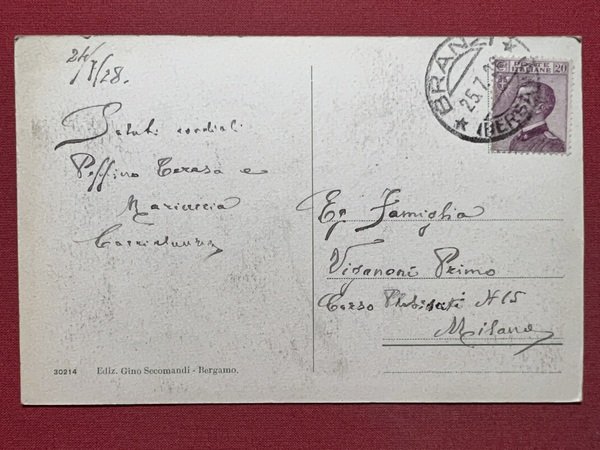 24/7/28.
Saluti cordiali
Peppino Teresa e
Mariuccia
BRANZI
25.7.
(BERGA
POSTE
ITALIANE 20
Eg Famiglia
Viganoni Primo
Corso Plebisciti N 15
Milano
30214 Ediz. Gino Secomandi - Bergamo.